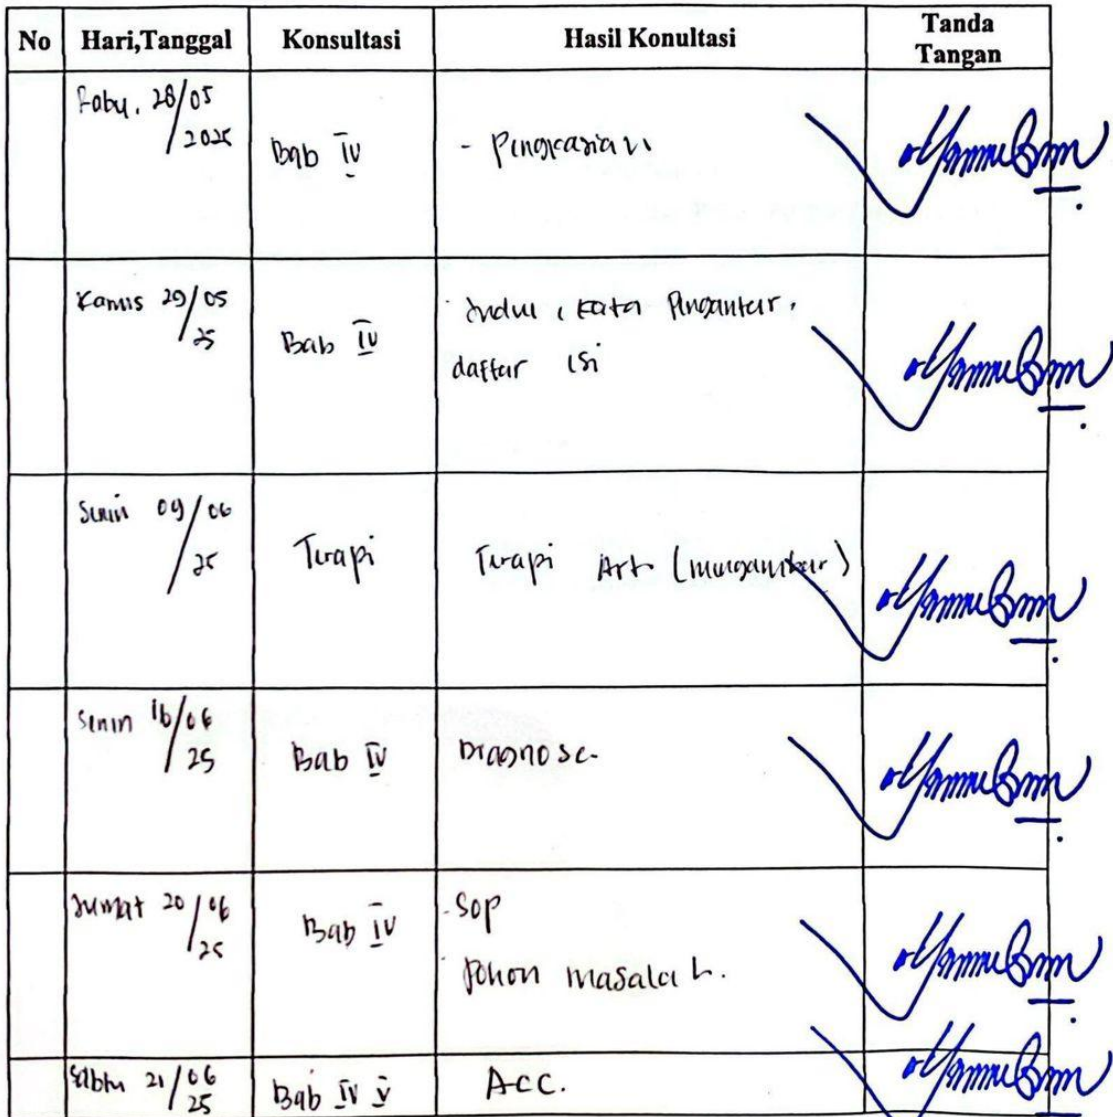 No Hari,Tanggal Konsultasi Hasil Konultasi Tanda Tangan
Rabu, 28/05/2025 Bab IV - Pengkajian
Kamis 29/05/25 Bab IV - Judul, Kata Pengantar,
daftar isi
Senin 09/06/25 Terapi Terapi Art (menggambar)
Senin 16/06/25 Bab IV Diagnosa
Jumat 20/06/25 Bab IV - SOP
- Pohon masalah.
Sabtu 21/06/25 Bab IV V Acc.